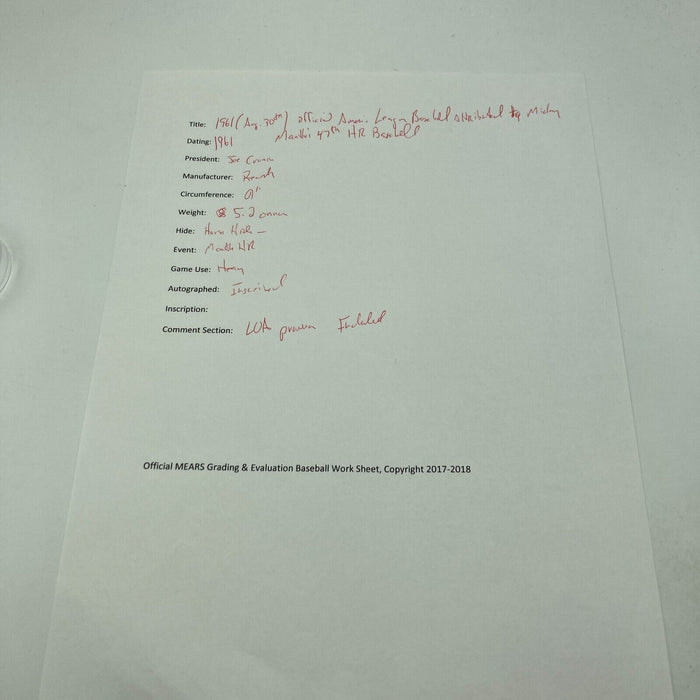 Title: 1961 (Aug. 30th) official Amer. League Baseball attributed to Mickey
Dating: 1961 Mantle's 47th HR Baseball
President: Joe Cronin
Manufacturer: Reach
Circumference: 9"
Weight: 5.2 ounces
Hide: Horse Hide –
Event: Mantle HR
Game Use: Heavy
Autographed: Inscribed
Inscription:
Comment Section: LOA proven Included
Official MEARS Grading & Evaluation Baseball Work Sheet, Copyright 2017-2018